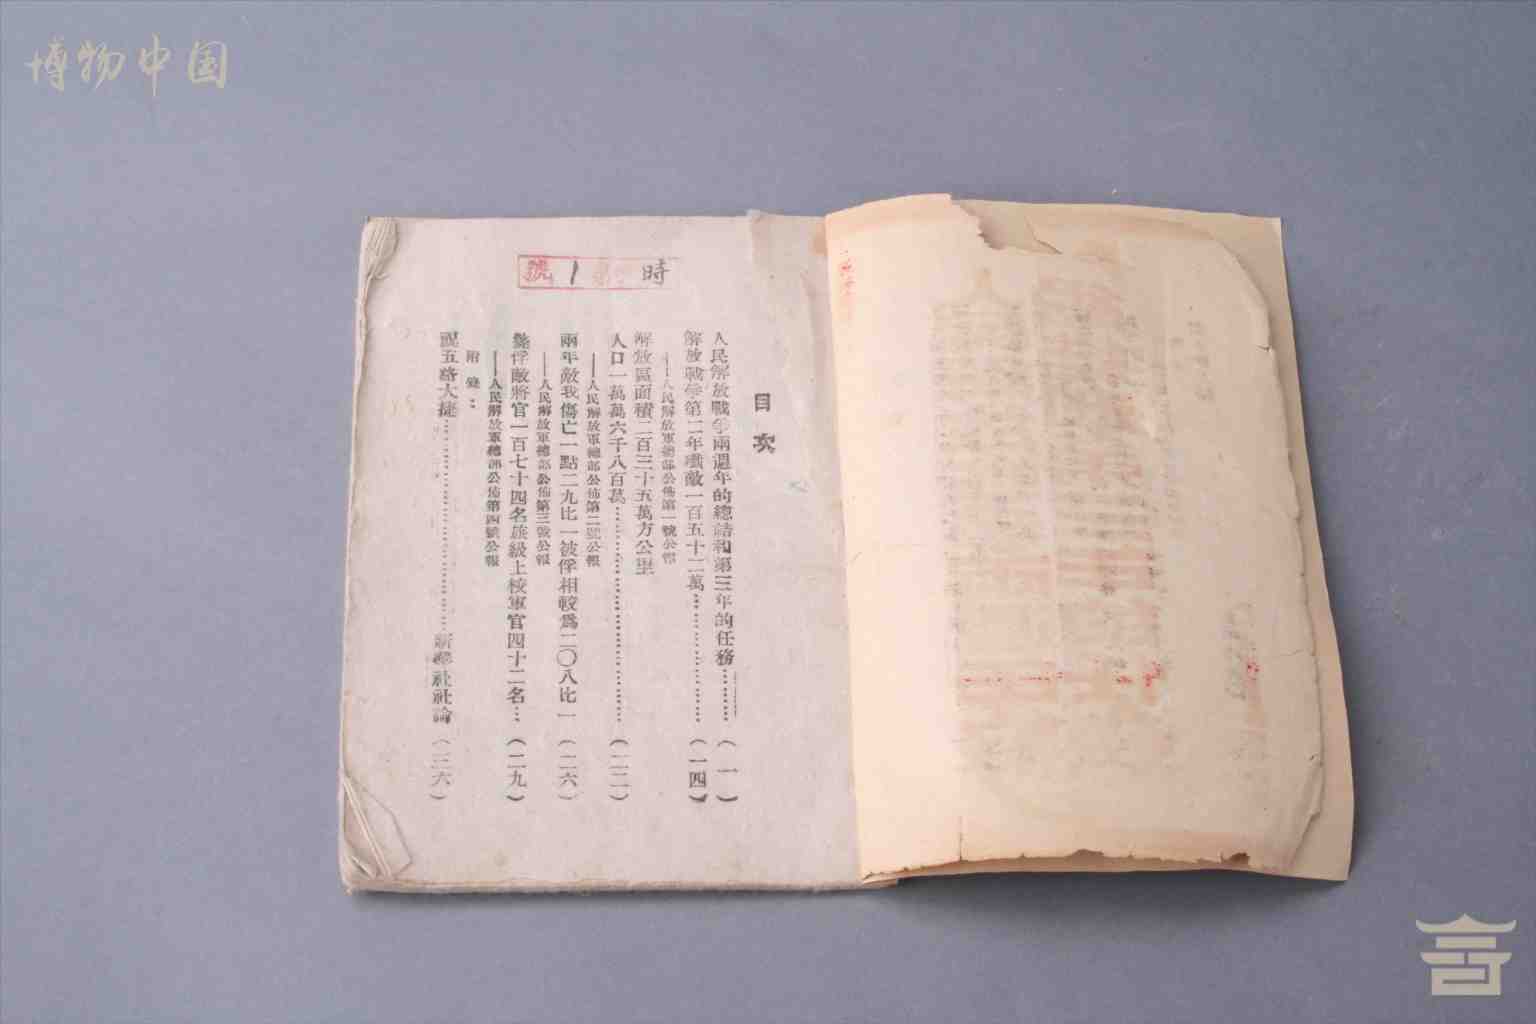 博物中国
時 1 號
目次
人民解放戰爭兩週年的總結和第三年的任務………（一）
解放戰爭第二年殲敵一百五十二萬………………（一四）
——人民解放軍總部公佈第一號公報
解放區面積二百三十五萬方公里
人口一萬萬六千八百萬………………………（二二）
——人民解放軍總部公佈第二號公報
兩年敵我傷亡一點二九比一被俘相較爲二〇八比一（二六）
——人民解放軍總部公佈第三號公報
斃俘敵將官一百七十四名旅級上校軍官四十二名…（二九）
——人民解放軍總部公佈第四號公報
附錄：
五路大捷………………………新華社社論（三六）